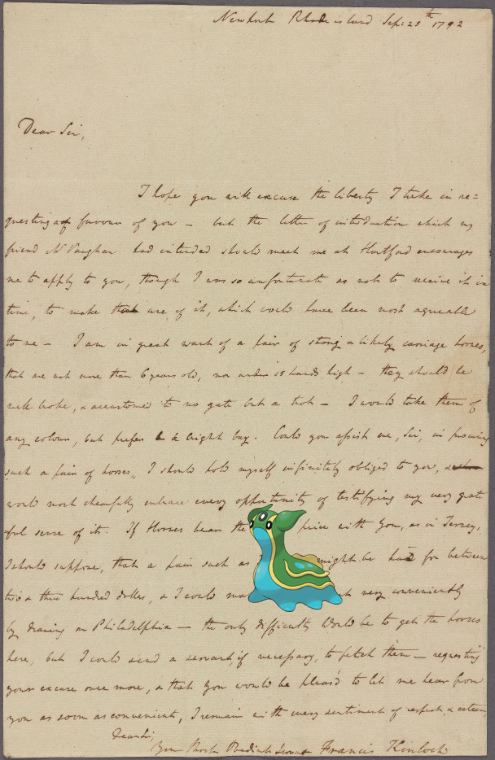 Newport Rhode island Sep: 28th 1792
Dear Sir,
I hope you will excuse the liberty I take in re=
questing a favour of you – but the letter of introduction which my
friend Mr Vaughan had intended should meet me at Hartford encourages
me to apply to you, though I was so unfortunate as not to receive it in
time, to make use of it, which would have been most agreeable
to me – I am in great want of a pair of strong & likely carriage horses,
that are not more than 6 years old, nor under 15 hands high – they should be
well broke, & accustomed to no gait but a trot – I would take them of
any colour, but prefer a bright bay. Could you assist me, Sir, in procuring
such a pair of horses, I should hold myself infinitely obliged to you, &
would most chearfully embrace every opportunity of testifying my very grate
ful sense of it. If Horses bear the price with you, as in Jersey,
I should suppose, that a pair such as might be had for between
two & three hundred dollrs, & I could very conveniently
by drawing on Philadelphia – the only difficulty would be to get the horses
here, but I could send a servant if necessary, to fetch them – requesting
your excuse once more, & that you would be pleas'd to let me hear from
you as soon as convenient, I remain with every sentiment of respect & esteem
Dear Sir,
Your Most Obedient Servant Francis Kinloch